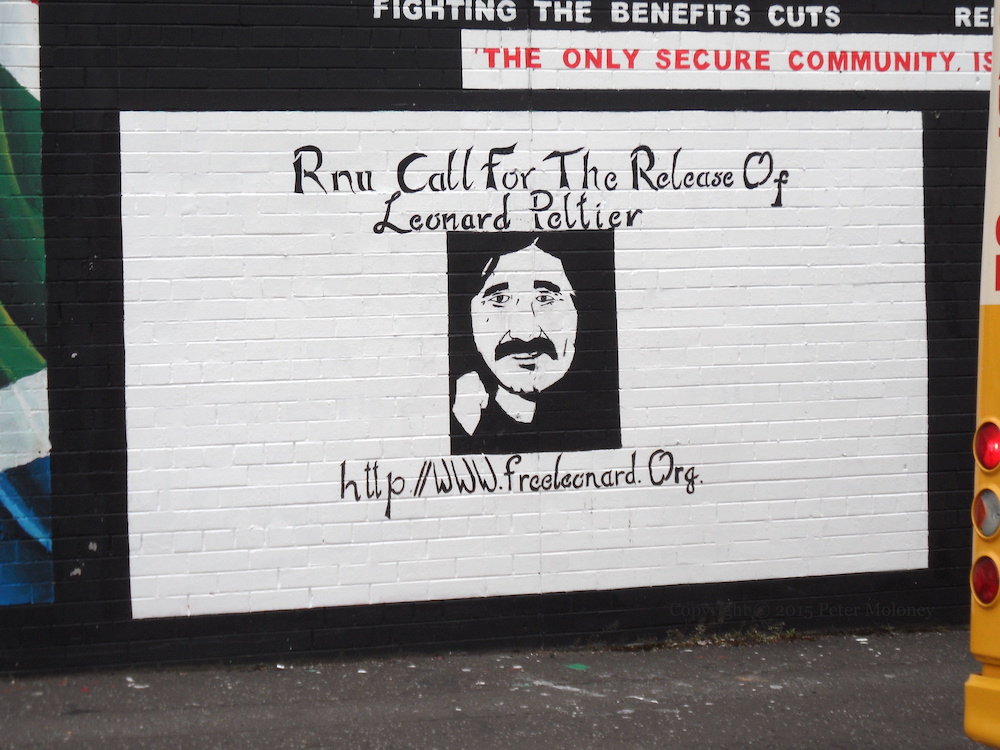 FIGHTING THE BENEFITS CUTS
'THE ONLY SECURE COMMUNITY, IS
Rnu Call For The Release Of
Leonard Peltier
http://WWW.freeleonard.Org.
Copyright © 2015 Peter Moloney